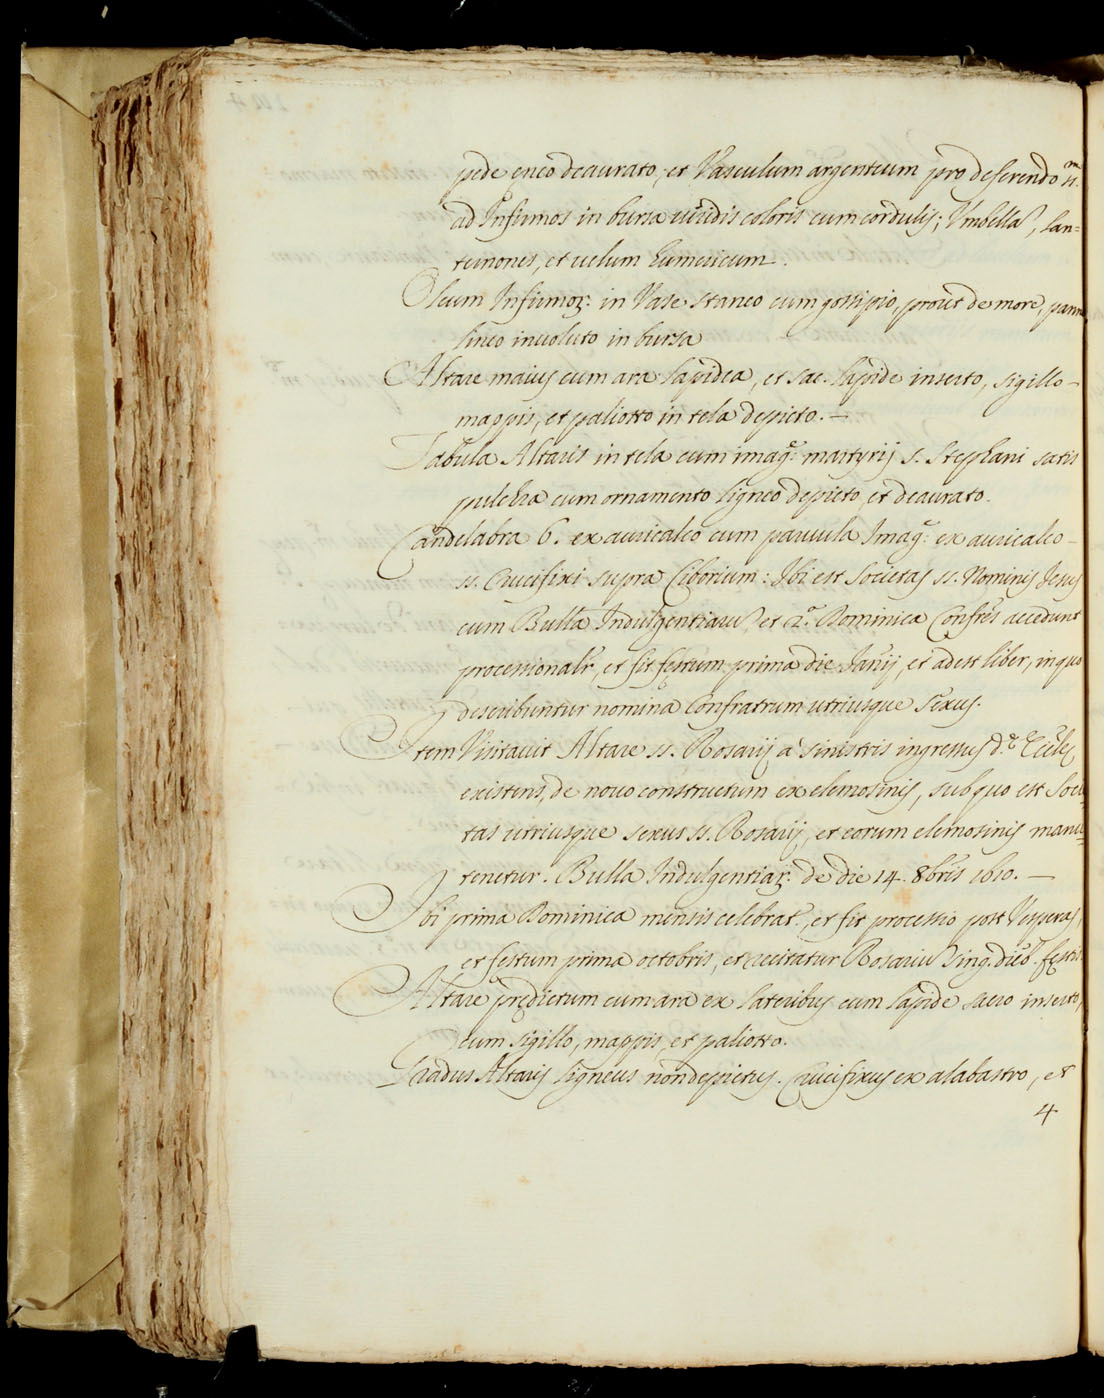 pede ęneo deaurato, et Vasculum argenteum pro deferendo
ad Infirmos in bursa uiridis coloris cum cordulis; Vmbella, lan=
ternones, et uelum humericum.
Oleum Infirmoꝝ: in Vase staneo cum gossipio, prout de more, pann
lineo inuoluto in bursa
Altare maius cum ara lapidea, et sac. lapide inserto, sigillo -
mappis, et paliotto in tela depicto. -
Tabula Altaris in tela cum imag: martyrij s. Stephani satis
pulchra cum ornamento ligneo depicto et deaurato.
Candelabra 6. ex auricalco cum paruula Imag: ex auricalco -
ss. Crucifixi supra Ciborium: Ibi est Societas ss. Nominis Jesus
cum Bulla Indulgentiarũ et 2.ª Dominica Confres accedunt
processionalr, et fit festum prima die Janij, et adest liber, in quo
describuntur nomina Confratrum utriusque sexus.
Item Visitauit Altare ss. Rosarij a sinistris ingressus d.ę Eccleę
existens, de nouo constructum ex elemosinis, sub quo est Soci=
tas utriusque sexus ss. Rosarij, et eorum elemosinis manu=
tenetur. Bulla Indulgentiaꝝ: de die 14. 8bris 1610. -
Ibi prima Dominica mensis celebrat, et fit processio post Vesperas,
et festum prima octobris, et recitatur Rosariũ sing. dieb. festis
Altare prędictum cum ara ex lateribus cum lapide sacro inserto,
cum sigillo, mappis, et paliotto.
Gradus Altaris ligneus non depictus. Crucifixus ex alabastro, et
4